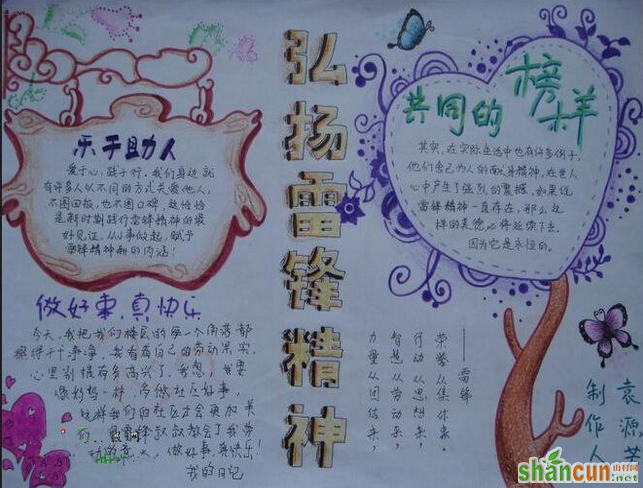 弘扬雷锋精神
乐于助人
爱于心，践于行。我们身边就
有许多人以不同的方式关爱他人，
不图回报，也不图口碑，这恰恰
是新时期践行雷锋精神的最
好见证。从小事做起，赋予
雷锋精神新的内涵！
共同的
榜样
其实，在实际生活中也有许多例子，
他们舍己为人的献身精神，在世人
心中产生了强烈的震撼。如果说
雷锋精神一直存在，那么这
样的美德必将延续下去，
因为它是永恒的。
做好事，真快乐
今天，我把我们楼区的每一个角落都
擦得干干净净，我看着自己的劳动果实，
心里别提有多高兴了。我想，我要
像妈妈一样，多做社区好事，
这样我们的社区才会更加美
们，是雷锋叔叔教会了我劳
动的意义，做好事，真快乐！
我的日记
——雷锋
荣誉从集体来。
行动从思想来，
智慧从劳动来，
力量从团结来，
制作人
袁源
shancun
山村网
.net